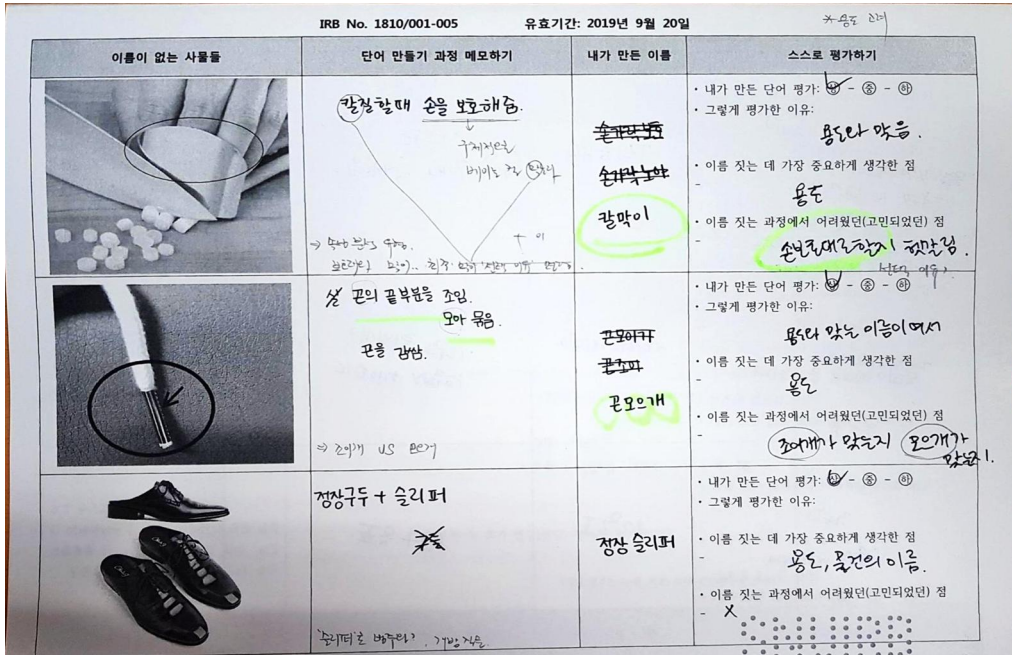 IRB No. 1810/001-005 유효기간: 2019년 9월 20일
*용도 고려
이름이 없는 사물들 단어 만들기 과정 메모하기 내가 만든 이름 스스로 평가하기
칼질할 때 손을 보호해줌.
칼막이
· 내가 만든 단어 평가: 상 - 중 - 하
· 그렇게 평가한 이유:
용도와 맞음.
· 이름 짓는 데 가장 중요하게 생각한 점
- 용도
· 이름 짓는 과정에서 어려웠던(고민되었던) 점
- 손보호대로 할지 헷갈림.
선택 이유?
끈의 끝부분을 조임.
모아 묶음.
끈을 감쌈.
끈모으개
· 내가 만든 단어 평가: 상 - 중 - 하
· 그렇게 평가한 이유:
용도와 맞는 이름이여서
· 이름 짓는 데 가장 중요하게 생각한 점
- 용도
· 이름 짓는 과정에서 어려웠던(고민되었던) 점
- 조이개가 맞는지 모으개가
맞는지.
정장구두 + 슬리퍼
정장 슬리퍼
· 내가 만든 단어 평가: 상 - 중 - 하
· 그렇게 평가한 이유:
· 이름 짓는 데 가장 중요하게 생각한 점
- 용도, 물건의 이름.
· 이름 짓는 과정에서 어려웠던(고민되었던) 점
- X